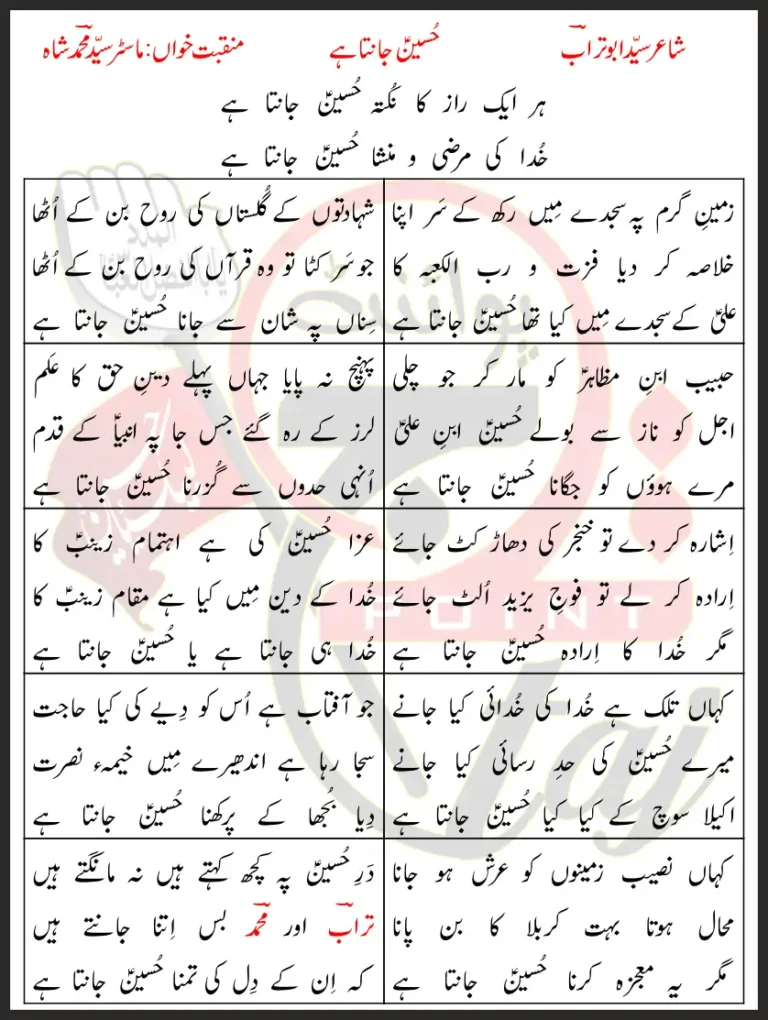 شاعر سیّد ابو تراب حُسینؑ جانتا ہے منقبت خواں: ماسٹر سیّد محمد شاہ
ہر ایک راز کا نُکتہ حُسینؑ جانتا ہے
خُدا کی مرضی و منشا حُسینؑ جانتا ہے
زمینِ گرم پہ سجدے مِیں رکھ کے سَر اپنا
خلاصہ کر دیا فزت و رب الکعبہ کا
علیؑ کے سجدے مِیں کیا تھا حُسینؑ جانتا ہے
شہادتوں کے گُلستاں کی روح بن کے اُٹھا
جو سَر کٹا تو وہ قرآں کی روح بن کے اُٹھا
سِناں پہ شان سے جانا حُسینؑ جانتا ہے
حبیب ابنِ مظاہرؑ کو مار کر جو چلی
اجل کو ناز سے بولے حُسینؑ ابنِ علیؑ
مرے ہوؤں کو جگانا حُسینؑ جانتا ہے
پہنچ نہ پایا جہاں پہلے دینِ حق کا عَلم
لرز کے رہ گئے جس جا پہ انبیاؑ کے قدم
اُنہی حدوں سے گُزرنا حُسینؑ جانتا ہے
اِشارہ کر دے تو خنجر کی دھاڑ کٹ جائے
اِرادہ کر لے تو فوجِ یزید اُلٹ جائے
مگر خُدا کا اِرادہ حُسینؑ جانتا ہے
عزا حُسینؑ کی ہے اہتمام زینبؑ کا
خُدا کے دین مِیں کیا ہے مقام زینبؑ کا
خُدا ہی جانتا ہے یا حُسینؑ جانتا ہے
کہاں تلک ہے خُدا کی خُدائی کیا جانے
میرے حُسینؑ کی حدِ رسائی کیا جانے
اکیلا سوچ کے کیا کیا حُسینؑ جانتا ہے
جو آفتاب ہے اُس کو دِیے کی کیا حاجت
سجا رہا ہے اندھیرے مِیں خیمہء نصرت
دِیا بُجھا کے پرکھنا حُسینؑ جانتا ہے
کہاں نصیب زمینوں کو عرش ہو جانا
محال ہوتا بہت کربلا کا بن پانا
مگر یہ معجزہ کرنا حُسینؑ جانتا ہے
دَرِ حُسینؑ پہ کچھ کہتے ہیں نہ مانگتے ہیں
تراب اور محمد بس اِتنا جانتے ہیں
کہ اِن کے دِل کی تمنا حُسینؑ جانتا ہے
پوائنٹ
POINT
Taj